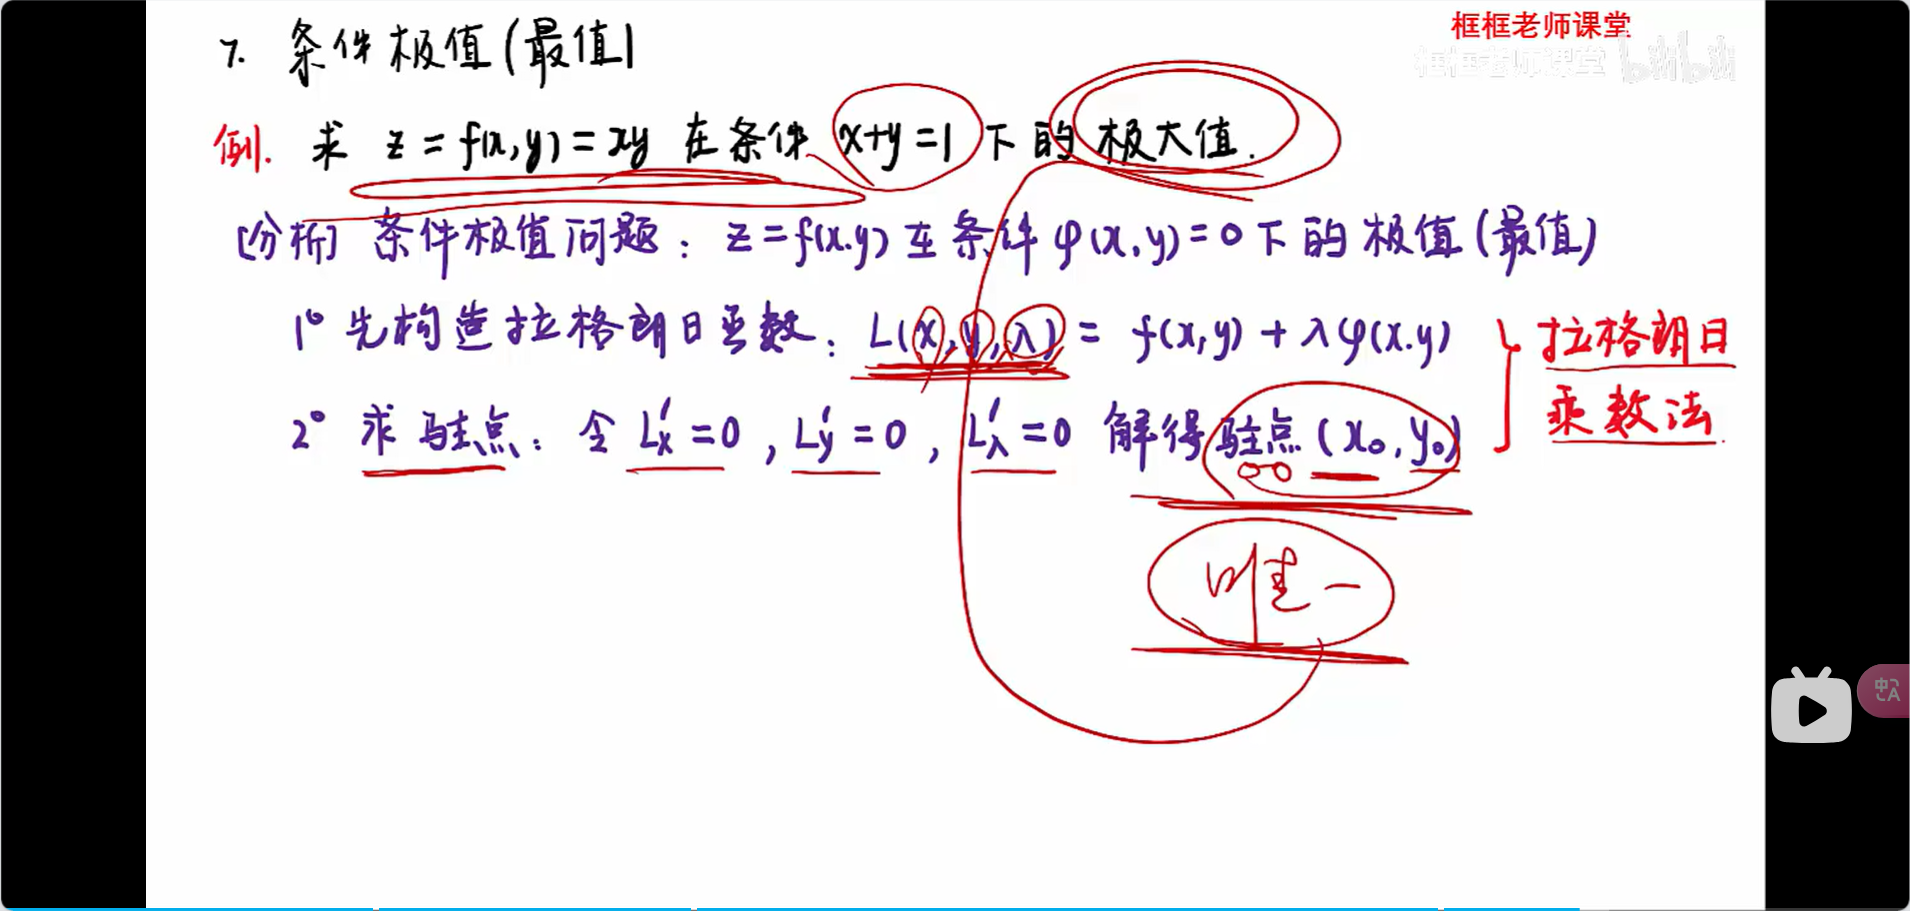 框框老师课堂
框框老师课堂 bilibili
7. 条件极值(最值)
例. 求 z = f(x,y) = xy 在条件 x+y=1 下的 极大值.
[分析] 条件极值问题: z=f(x.y) 在条件 φ(x,y)=0 下的极值(最值)
1° 先构造拉格朗日函数: L(x,y,λ) = f(x,y) + λφ(x.y)
拉格朗日
2° 求驻点: 令 L'x=0, L'y=0, L'λ=0 解得驻点(x₀,y₀)
乘数法
唯一
中A